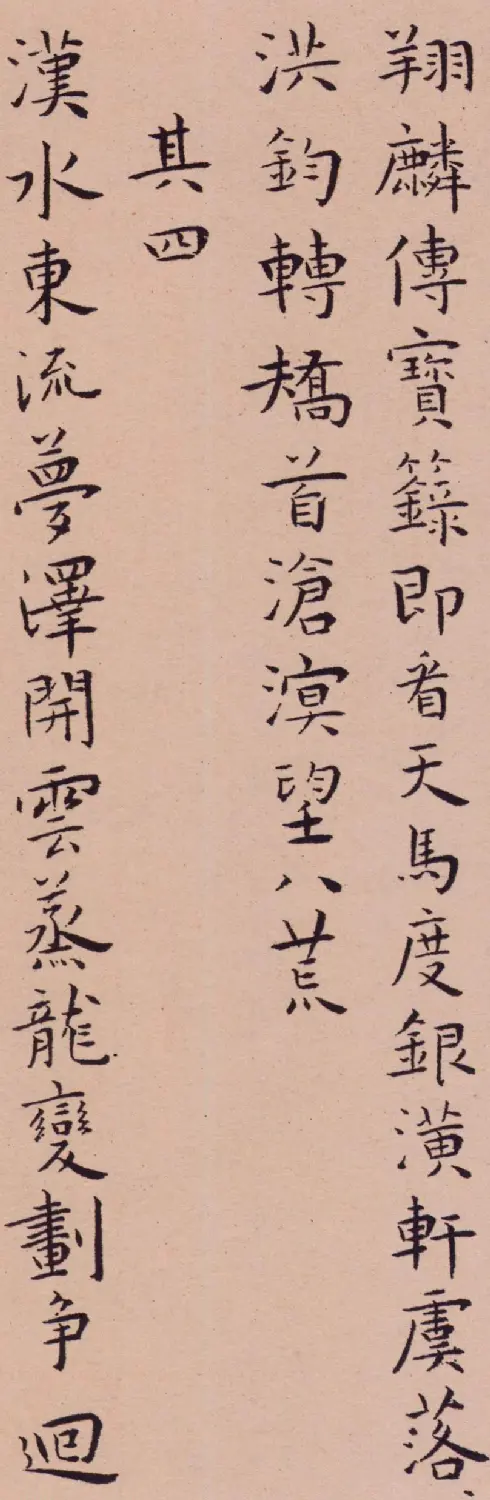 翔麟傳寶籙即看天馬度銀潢軒虞落
洪鈞轉矯首滄溟望八荒
其四
漢水東流夢澤開雲蒸龍變劃爭迴